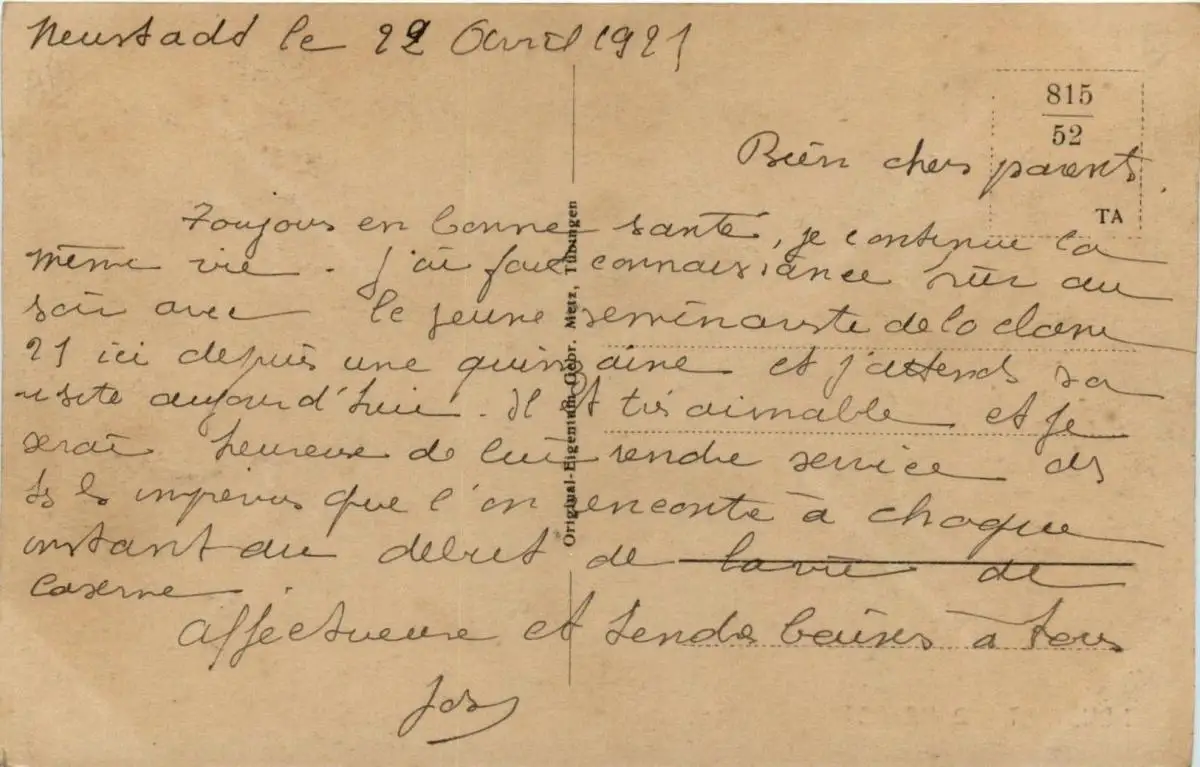 Neustadt le 22 Avril 1921
815
52
TA
Bien chers parents.
Toujours en bonne santé, je continue la
même vie. J'ai fait connaissance hier au
soir avec le jeune séminariste de la classe
21 ici depuis une quinzaine et j'attends sa
visite aujourd'hui. Il est très aimable et je
serai heureux de lui rendre service
les imprévus que l'on rencontre à chaque
instant au début de la vie de
caserne.
Affectueux et tendres baisers à tous
Jos
Original-Eigentum Gebr. Metz, Tübingen